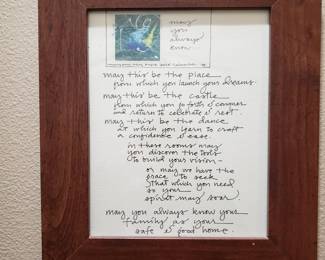 may
you
always
know
may this be the place
from which you launch your dreams.
may this be the castle
from which you go forth & conquer
and return to celebrate & rest.
may this be the dance
in which you learn to craft
a confidence & ease.
in these rooms may
you discover the tools
to build your vision-
or may we have the
grace to seek
that which you need
so your
spirit may soar
may you always know your
family as your
safe & good home.